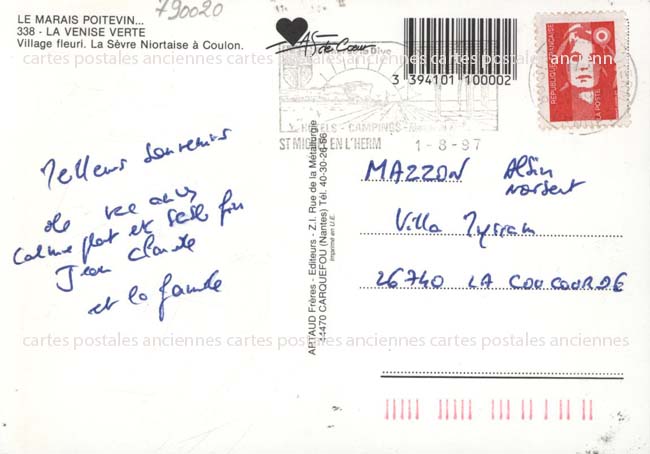 790020
LE MARAIS POITEVIN...
338 - LA VENISE VERTE
Village fleuri. La Sèvre Niortaise à Coulon.
As de Cœur
3 394101 100002
RÉPUBLIQUE FRANÇAISE
LA POSTE
HOTELS - CAMPINGS
ST MICHEL EN L'HERM
1-8-97
cartes postales anciennes cartes postales anciennes cartes postales anciennes
Meilleurs souvenirs
de vacances
Calme plat et sable fin
Jean Claude
et la famille
ARTAUD Frères - Editeurs - Z.I. Rue de la Métallurgie
44470 CARQUEFOU (Nantes) Tél. 40-30-26-56
Imprimé en U.E.
MAZZON Alain
Norbert
Villa Myriam
26740 LA COUCOURDE
cartes postales anciennes cartes postales anciennes cartes postales anciennes